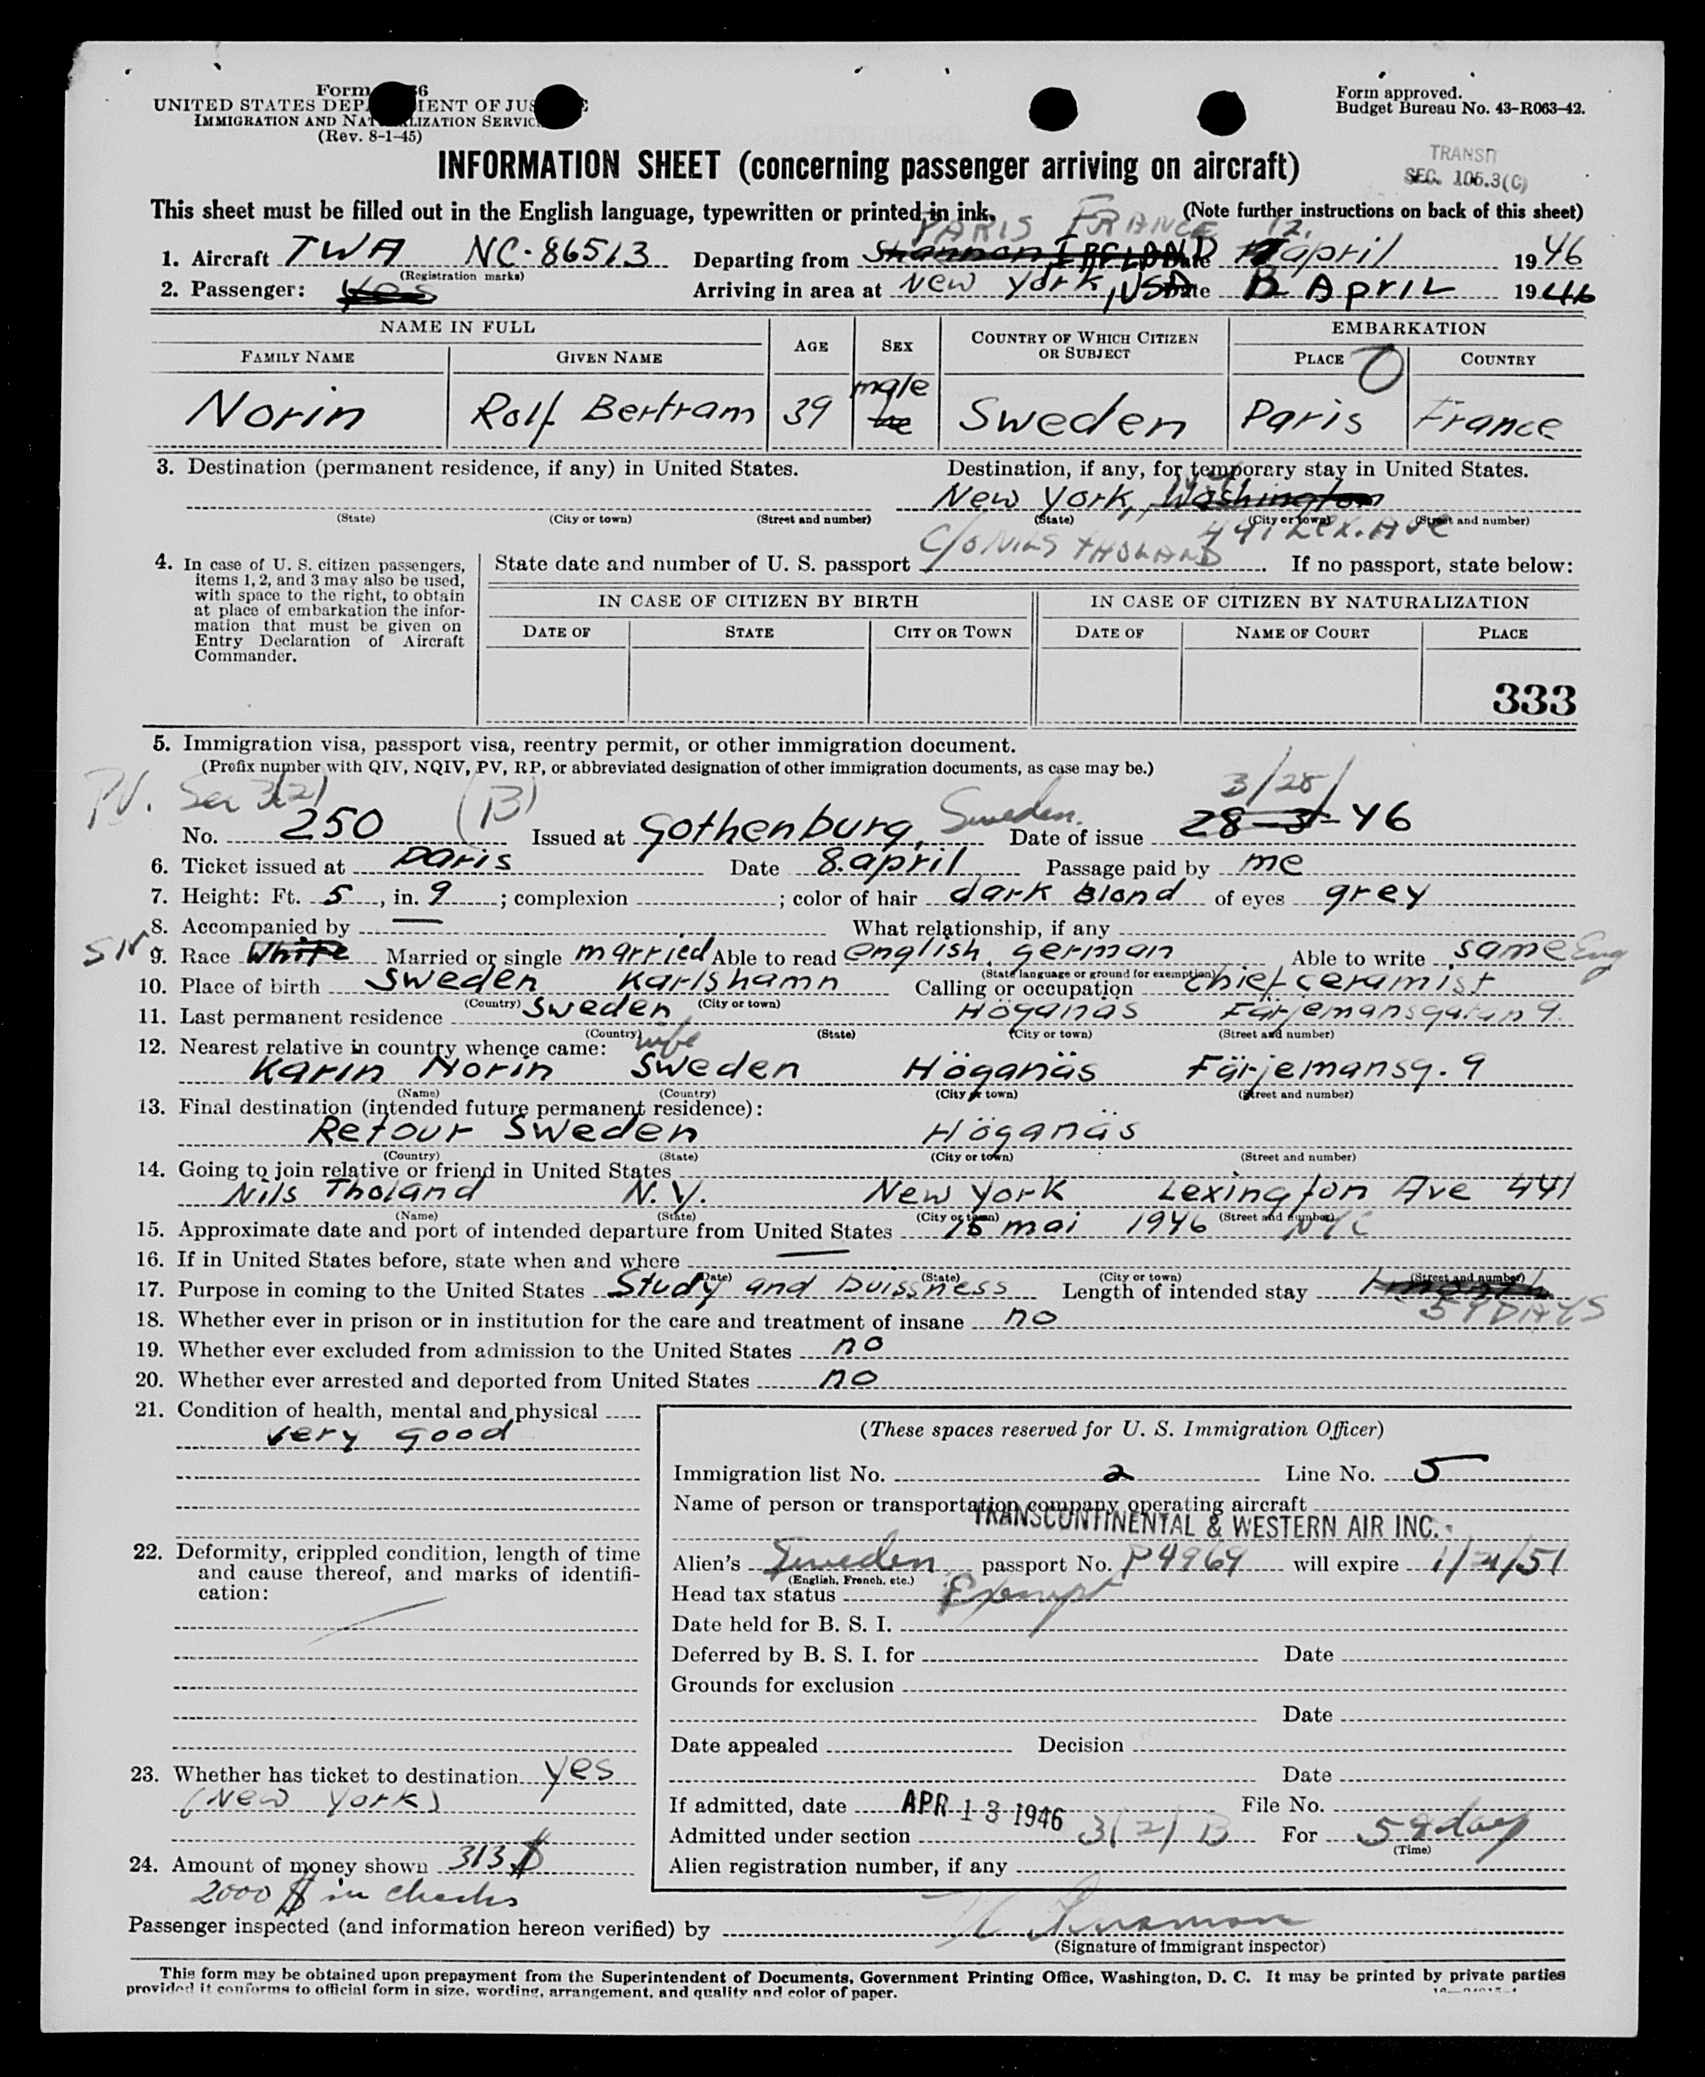 Form 66
UNITED STATES DEP MENT OF JUS E
IMMIGRATION AND NAT LIZATION SERVIC
(Rev. 8-1-45)
Form approved.
Budget Bureau No. 43-R063-42.
TRANSIT
SEC. 105.3(C)
INFORMATION SHEET (concerning passenger arriving on aircraft)
This sheet must be filled out in the English language, typewritten or printed in ink. (Note further instructions on back of this sheet)
PARIS FRANCE 12.
1. Aircraft TWA NC-86513 Departing from Shannon IRELAND Date april 1946
(Registration marks)
2. Passenger: Yes Arriving in area at New York, USA Date APRIL 1946
NAME IN FULL AGE SEX COUNTRY OF WHICH CITIZEN OR SUBJECT EMBARKATION
FAMILY NAME GIVEN NAME PLACE COUNTRY
male
Norin Rolf Bertram 39 he Sweden Paris France
O
3. Destination (permanent residence, if any) in United States. Destination, if any, for temporary stay in United States.
New York, Washington
(State) (City or town) (Street and number) (State) (City or town) (Street and number)
441 Lex. Ave
C/O NILS THOLAND
4. In case of U. S. citizen passengers, items 1, 2, and 3 may also be used, with space to the right, to obtain at place of embarkation the information that must be given on Entry Declaration of Aircraft Commander.
State date and number of U. S. passport If no passport, state below:
IN CASE OF CITIZEN BY BIRTH IN CASE OF CITIZEN BY NATURALIZATION
DATE OF STATE CITY OR TOWN DATE OF NAME OF COURT PLACE
333
5. Immigration visa, passport visa, reentry permit, or other immigration document.
(Prefix number with QIV, NQIV, PV, RP, or abbreviated designation of other immigration documents, as case may be.)
PV. Sec 3(2) (B) Sweden. 3/28/
No. 250 Issued at Gothenburg, Date of issue 28-3-46
6. Ticket issued at Paris Date 8. april Passage paid by me
7. Height: Ft. 5, in. 9; complexion ; color of hair dark blond of eyes grey
8. Accompanied by — What relationship, if any
9. Race White Married or single married Able to read english, german Able to write same Eng
(State language or ground for exemption)
10. Place of birth Sweden Karlshamn Calling or occupation chief ceramist
(Country) (City or town)
11. Last permanent residence Sweden Höganäs Färjemansgatan 9.
(Country) (State) (City or town) (Street and number)
12. Nearest relative in country whence came: wife
Karin Norin Sweden Höganäs Färjemansg. 9
(Name) (Country) (City or town) (Street and number)
13. Final destination (intended future permanent residence):
Retour Sweden Höganäs
(Country) (State) (City or town) (Street and number)
14. Going to join relative or friend in United States
Nils Tholand N.Y. New York Lexington Ave 441
(Name) (State) (City or town) (Street and number)
15. Approximate date and port of intended departure from United States 15 mai 1946 NYC
16. If in United States before, state when and where —
(Date) (State) (City or town) (Street and number)
17. Purpose in coming to the United States Study and buissness Length of intended stay 1 month
59 DAYS
18. Whether ever in prison or in institution for the care and treatment of insane no
19. Whether ever excluded from admission to the United States no
20. Whether ever arrested and deported from United States no
21. Condition of health, mental and physical
very good
22. Deformity, crippled condition, length of time and cause thereof, and marks of identification:
23. Whether has ticket to destination yes
(New York)
24. Amount of money shown 313 $
2000 $ in checks
(These spaces reserved for U. S. Immigration Officer)
Immigration list No. 2 Line No. 5
Name of person or transportation company operating aircraft
TRANSCONTINENTAL & WESTERN AIR INC.
Alien's Sweden passport No. P4969 will expire 1/21/51
(English, French, etc.)
Head tax status Exempt
Date held for B. S. I.
Deferred by B. S. I. for Date
Grounds for exclusion
Date
Date appealed Decision
Date
If admitted, date APR 13 1946 File No.
Admitted under section 3(2) B For 59 day
(Time)
Alien registration number, if any
Passenger inspected (and information hereon verified) by
(Signature of Immigrant inspector)
This form may be obtained upon prepayment from the Superintendent of Documents, Government Printing Office, Washington, D. C. It may be printed by private parties
provided it conforms to official form in size, wording, arrangement, and quality and color of paper.